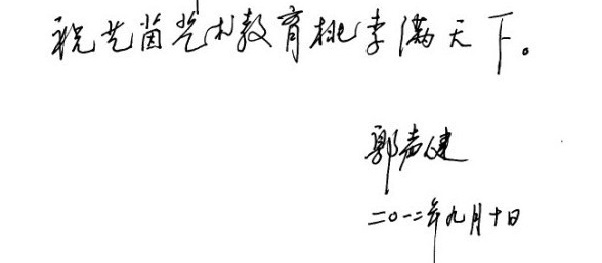 祝艺茵艺术教育桃李满天下。
郭声健
二〇一二年九月十日